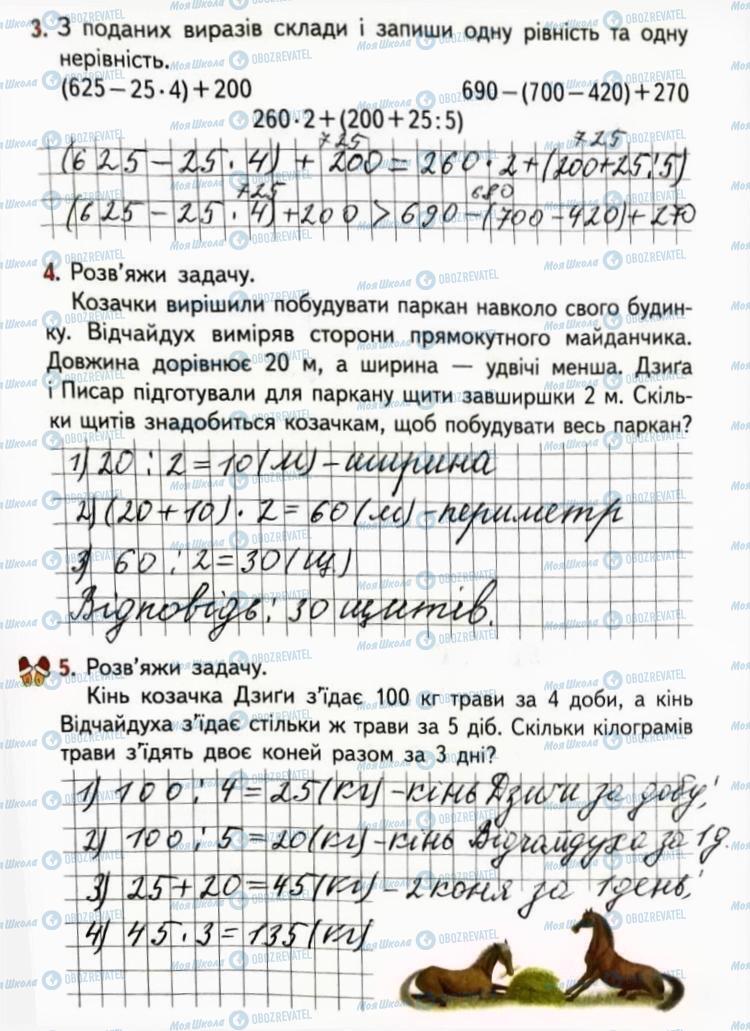 3. З поданих виразів склади і запиши одну рівність та одну
нерівність.
(625 – 25 · 4) + 200 690 – (700 – 420) + 270
260 · 2 + (200 + 25 : 5)
725 725
(625 – 25 · 4) + 200 = 260 · 2 + (200 + 25 : 5)
725 680
(625 – 25 · 4) + 200 > 690 – (700 – 420) + 270
4. Розв’яжи задачу.
Козачки вирішили побудувати паркан навколо свого будин-
ку. Відчайдух виміряв сторони прямокутного майданчика.
Довжина дорівнює 20 м, а ширина — удвічі менша. Дзиґа
і Писар підготували для паркану щити завширшки 2 м. Скіль-
ки щитів знадобиться козачкам, щоб побудувати весь паркан?
1) 20 : 2 = 10 (м) – ширина
2) (20 + 10) · 2 = 60 (м) – периметр
3) 60 : 2 = 30 (щ)
Відповідь: 30 щитів.
5. Розв’яжи задачу.
Кінь козачка Дзиґи з’їдає 100 кг трави за 4 доби, а кінь
Відчайдуха з’їдає стільки ж трави за 5 діб. Скільки кілограмів
трави з’їдять двоє коней разом за 3 дні?
1) 100 : 4 = 25 (кг) – кінь Дзиги за добу;
2) 100 : 5 = 20 (кг) – кінь Відчайдуха за 1 д.
3) 25 + 20 = 45 (кг) – 2 коня за 1 день;
4) 45 · 3 = 135 (кг)
Моя Школа OBOZREVATEL